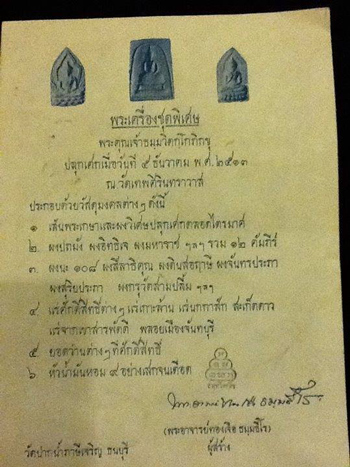 พระเครื่องชุดพิเศษ
พระคุณเจ้าธมฺมวิตกฺโกภิกขุ
ปลุกเศกเมื่อวันที่ ๕ ธันวาคม พ.ศ. ๒๕๑๓
ณ วัดเทพศิรินทราวาส
ประกอบด้วยวัสดุมงคลต่างๆ ดังนี้
๑ เส้นพระเกศาและผงวิเศษปลุกเศกตลอดไตรมาศ
๒. ผงปถมัง ผงอิทธิเจ ผงมหาราช ฯลฯ รวม ๑๒ คัมภีร์
๓. ผงนะ ๑๐๘ ผงสี่สาธิคุณ ผงดินสอฤาษี ผงจันทรประภา
ผงสุริยประภา ผงกรุวัดสามปลื้ม ฯลฯ
๔ แร่ศักดิ์สิทธิ์ต่างๆ แร่เกาะล้าน แร่นกกาสัก สะเก็ดดาว
แร่จากเขาสารพัดดี พลอยเมืองจันทบุรี
๕ ยอดว่านต่างๆ ที่ศักดิ์สิทธิ์
๖ หัวน้ำมันหอม ๙ อย่างเสกจนเดือด
(พระอาจารย์ทองเจือ ธมฺมธีโร)
วัดปากน้ำภาษีเจริญ ธนบุรี ผู้สร้าง